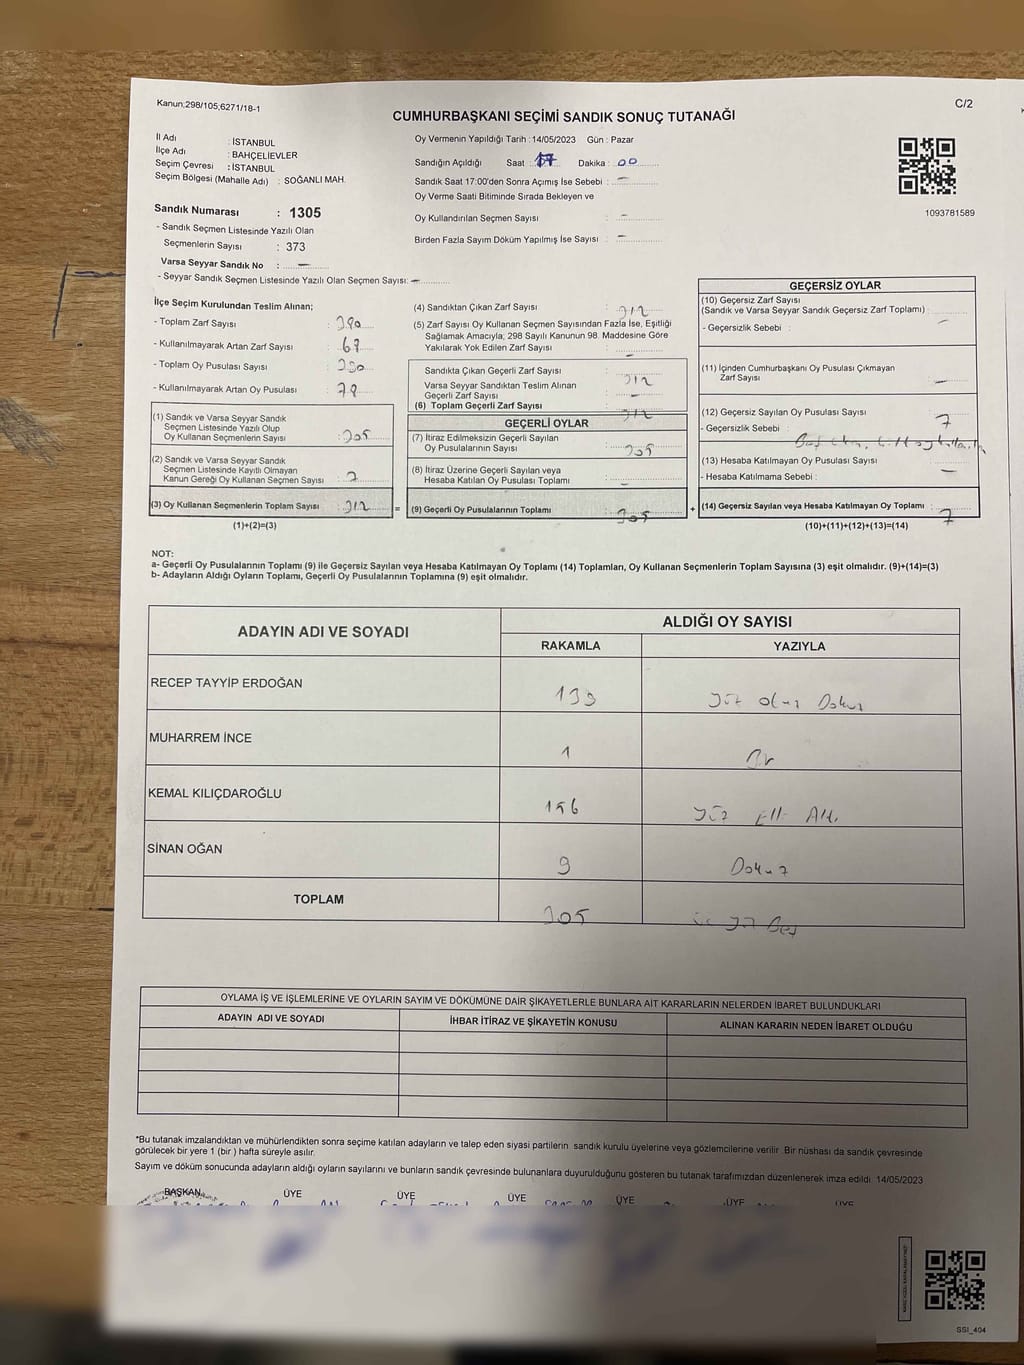 Kanun;298/105,6271/18-1
C/2
CUMHURBAŞKANI SEÇİMİ SANDIK SONUÇ TUTANAĞI
İl Adı : İSTANBUL
İlçe Adı : BAHÇELİEVLER
Seçim Çevresi : İSTANBUL
Seçim Bölgesi (Mahalle Adı) : SOĞANLI MAH.
Oy Vermenin Yapıldığı Tarih : 14/05/2023 Gün : Pazar
Sandığın Açıldığı Saat : 17 Dakika : 00
Sandık Saat 17:00'den Sonra Açımış İse Sebebi : —
Oy Verme Saati Bitiminde Sırada Bekleyen ve
Oy Kullandırılan Seçmen Sayısı : —
Birden Fazla Sayım Döküm Yapılmış İse Sayısı : —
1093781589
Sandık Numarası : 1305
- Sandık Seçmen Listesinde Yazılı Olan
Seçmenlerin Sayısı : 373
Varsa Seyyar Sandık No : —
- Seyyar Sandık Seçmen Listesinde Yazılı Olan Seçmen Sayısı: —
İlçe Seçim Kurulundan Teslim Alınan;
- Toplam Zarf Sayısı : 380
- Kullanılmayarak Artan Zarf Sayısı : 68
- Toplam Oy Pusulası Sayısı : 380
- Kullanılmayarak Artan Oy Pusulası :
(1) Sandık ve Varsa Seyyar Sandık
Seçmen Listesinde Yazılı Olup
Oy Kullanan Seçmenlerin Sayısı : 305
(2) Sandık ve Varsa Seyyar Sandık
Seçmen Listesinde Kayıtlı Olmayan
Kanun Gereği Oy Kullanan Seçmen Sayısı : 7
(3) Oy Kullanan Seçmenlerin Toplam Sayısı : 312
(1)+(2)=(3)
(4) Sandıktan Çıkan Zarf Sayısı : 312
(5) Zarf Sayısı Oy Kullanan Seçmen Sayısından Fazla İse, Eşitliği
Sağlamak Amacıyla; 298 Sayılı Kanunun 98. Maddesine Göre
Yakılarak Yok Edilen Zarf Sayısı : —
Sandıkta Çıkan Geçerli Zarf Sayısı : 312
Varsa Seyyar Sandıktan Teslim Alınan
Geçerli Zarf Sayısı : —
(6) Toplam Geçerli Zarf Sayısı : 312
GEÇERLİ OYLAR
(7) İtiraz Edilmeksizin Geçerli Sayılan
Oy Pusulalarının Sayısı : 305
(8) İtiraz Üzerine Geçerli Sayılan veya
Hesaba Katılan Oy Pusulası Toplamı : —
= (9) Geçerli Oy Pusulalarının Toplamı : 305
GEÇERSİZ OYLAR
(10) Geçersiz Zarf Sayısı
(Sandık ve Varsa Seyyar Sandık Geçersiz Zarf Toplamı) :
- Geçersizlik Sebebi :
(11) İçinden Cumhurbaşkanı Oy Pusulası Çıkmayan
Zarf Sayısı : —
(12) Geçersiz Sayılan Oy Pusulası Sayısı : 7
- Geçersizlik Sebebi :
(13) Hesaba Katılmayan Oy Pusulası Sayısı : —
- Hesaba Katılmama Sebebi :
+ (14) Geçersiz Sayılan veya Hesaba Katılmayan Oy Toplamı : 7
(10)+(11)+(12)+(13)=(14)
NOT:
a- Geçerli Oy Pusulalarının Toplamı (9) ile Geçersiz Sayılan veya Hesaba Katılmayan Oy Toplamı (14) Toplamları, Oy Kullanan Seçmenlerin Toplam Sayısına (3) eşit olmalıdır. (9)+(14)=(3)
b- Adayların Aldığı Oyların Toplamı, Geçerli Oy Pusulalarının Toplamına (9) eşit olmalıdır.
ADAYIN ADI VE SOYADI
ALDIĞI OY SAYISI
RAKAMLA YAZIYLA
RECEP TAYYİP ERDOĞAN 139 Yüz otuz Dokuz
MUHARREM İNCE 1 Bir
KEMAL KILIÇDAROĞLU 156 Yüz Elli Altı
SİNAN OĞAN 9 Dokuz
TOPLAM 305 üç yüz Beş
OYLAMA İŞ VE İŞLEMLERİNE VE OYLARIN SAYIM VE DÖKÜMÜNE DAİR ŞİKAYETLERLE BUNLARA AİT KARARLARIN NELERDEN İBARET BULUNDUKLARI
ADAYIN ADI VE SOYADI İHBAR İTİRAZ VE ŞİKAYETİN KONUSU ALINAN KARARIN NEDEN İBARET OLDUĞU
*Bu tutanak imzalandıktan ve mühürlendikten sonra seçime katılan adayların ve talep eden siyasi partilerin sandık kurulu üyelerine veya gözlemcilerine verilir. Bir nüshası da sandık çevresinde
görülecek bir yere 1 (bir ) hafta süreyle asılır.
Sayım ve döküm sonucunda adayların aldığı oyların sayılarını ve bunların sandık çevresinde bulunanlara duyurulduğunu gösteren bu tutanak tarafımızdan düzenlenerek imza edildi. 14/05/2023
BAŞKAN ÜYE ÜYE ÜYE ÜYE ÜYE ÜYE
SSI_404